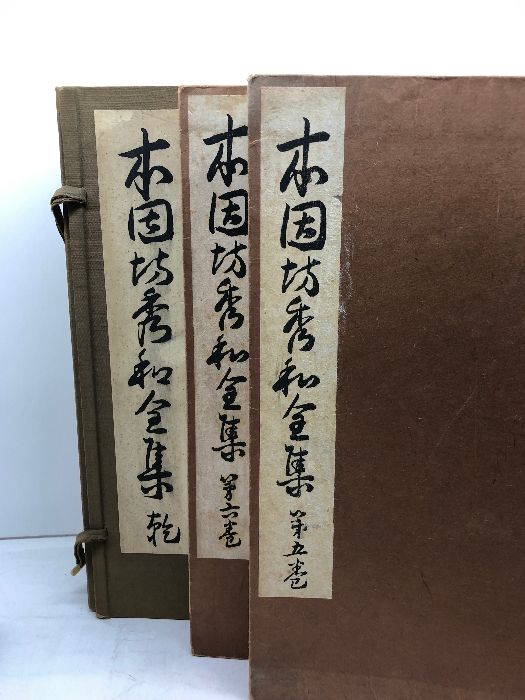 本因坊秀和全集 乾
本因坊秀和全集 第六巻
本因坊秀和全集 第五巻